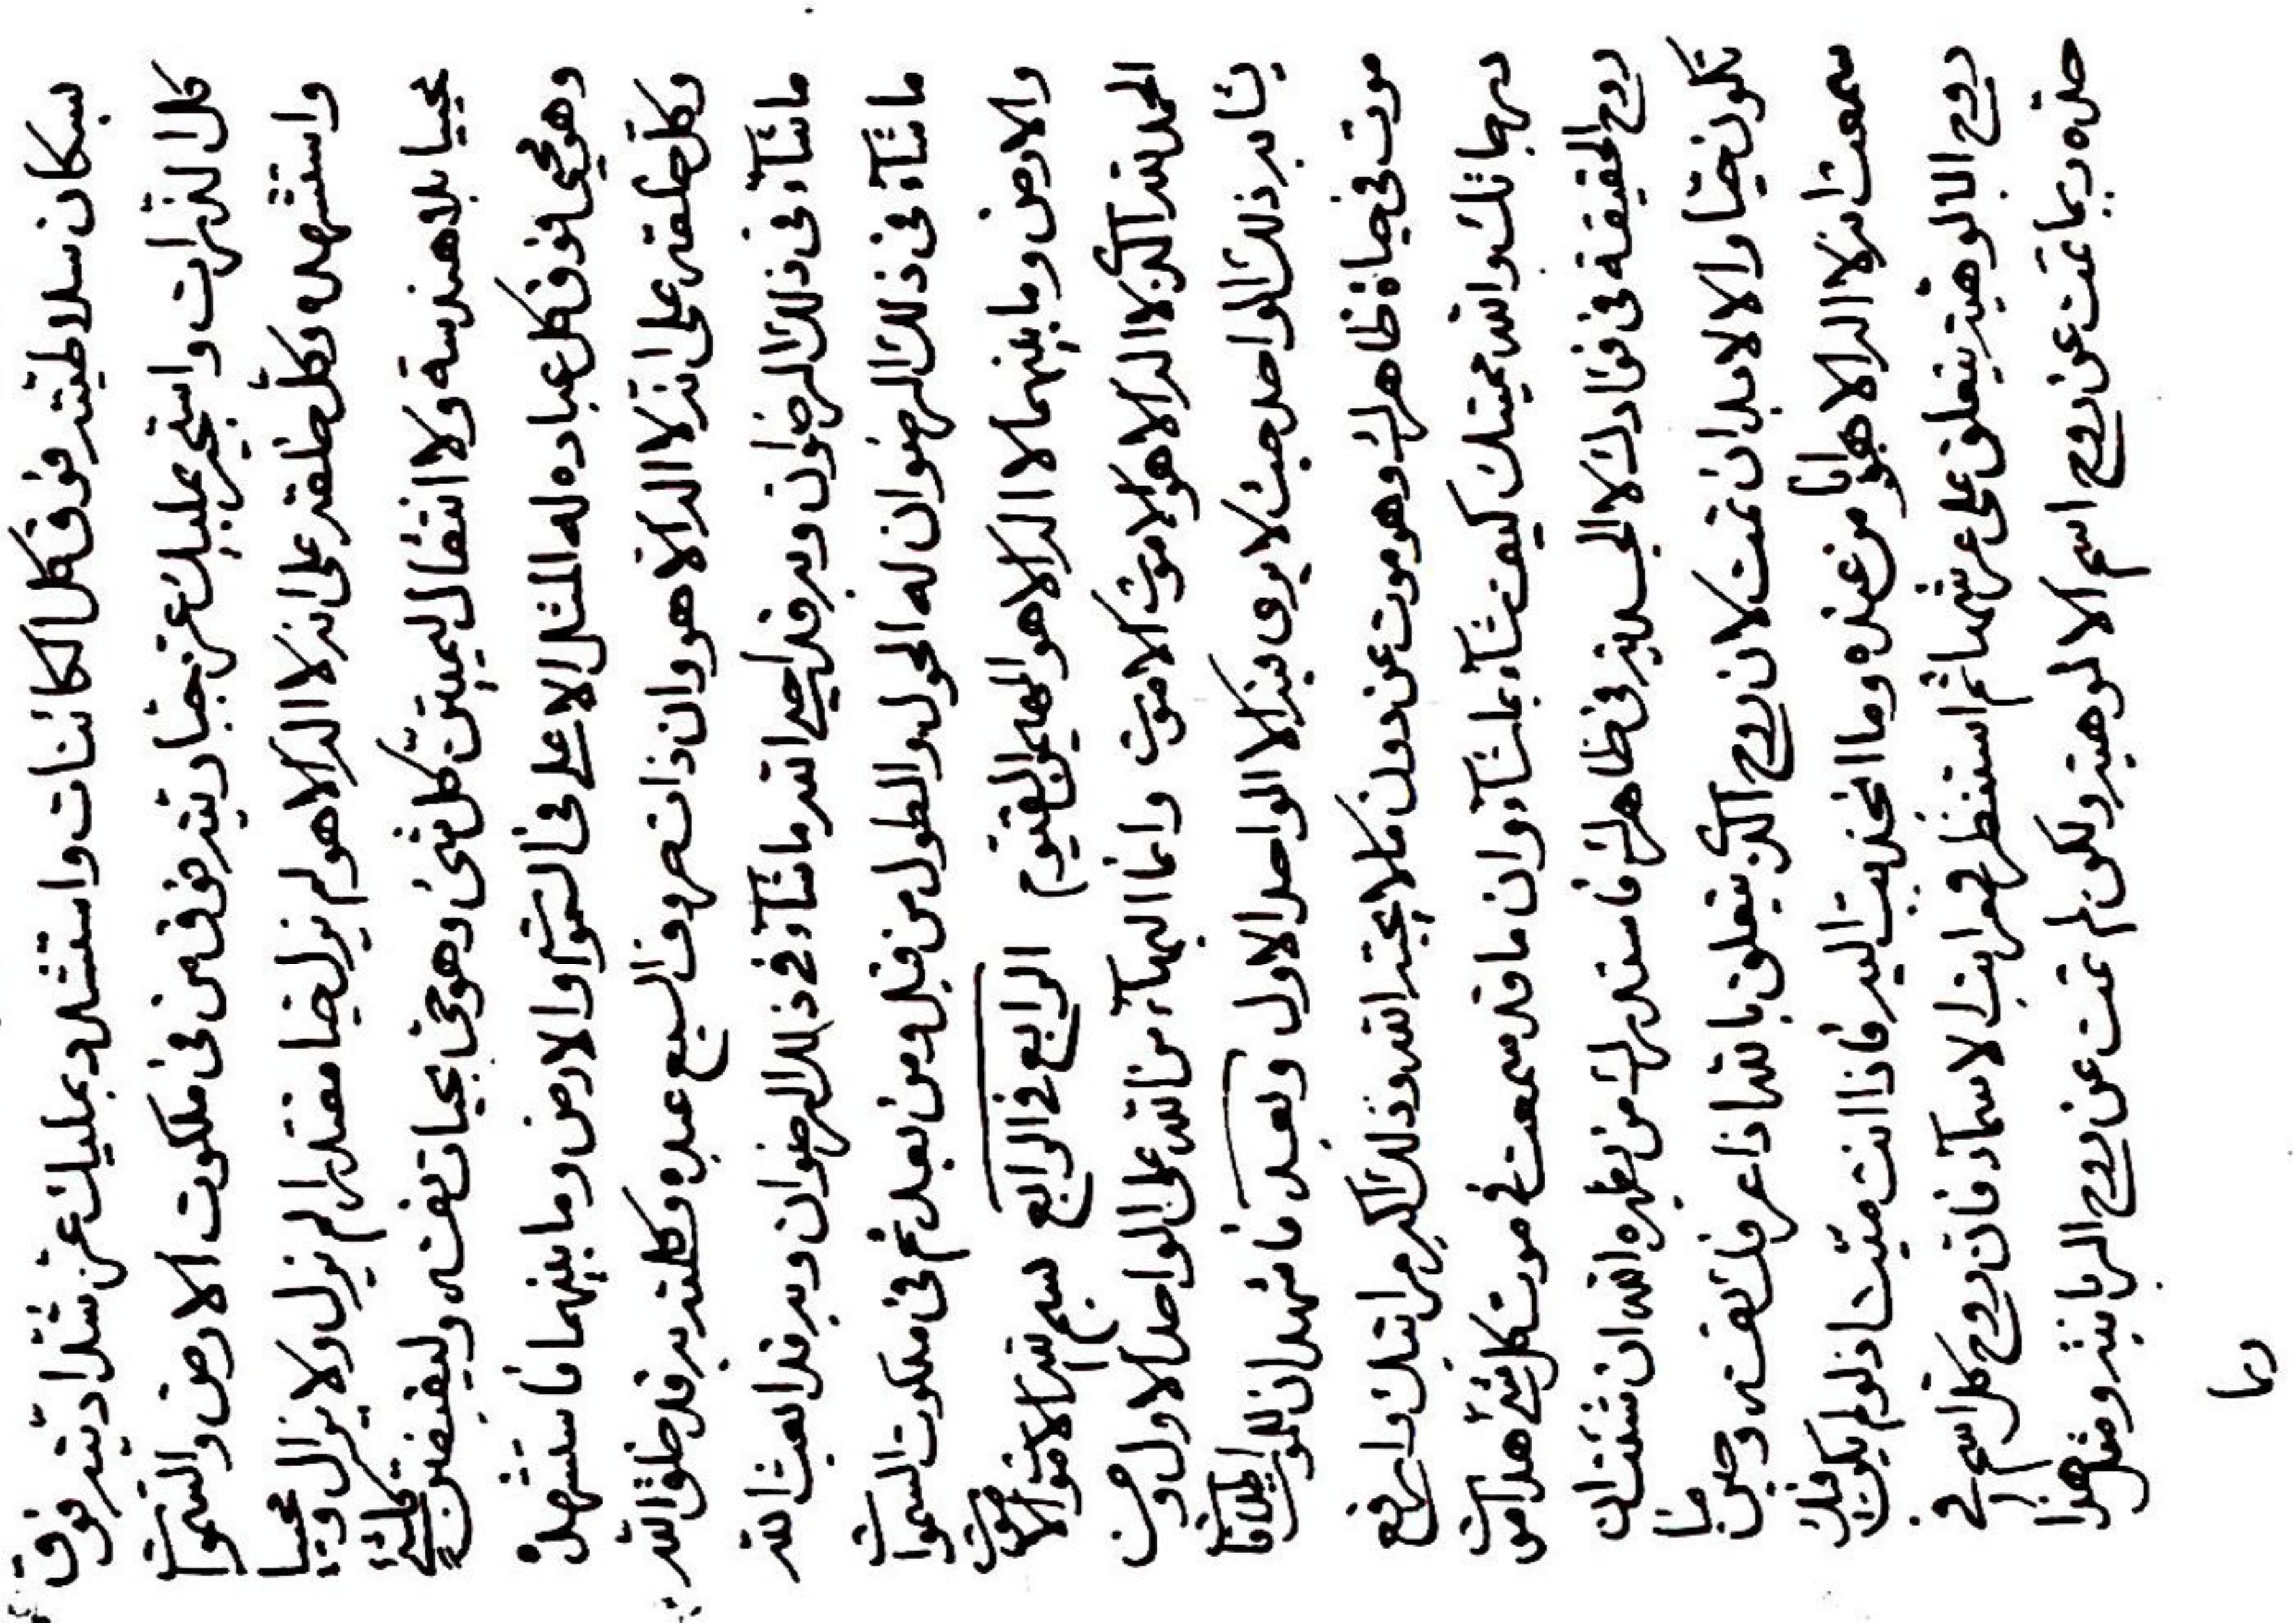 بسكان سلاطيته فوق كل الكائنات واستشدد بمليك عز شداديته فوق
كل الذرات واستجبر بمليك عز جباريته فوق من في ملكوت الارض والسموات
واستشهده وكل خلقه على انه لا اله الا هو لم يزل حيا مقتدرا لم يزل ولا يزال
محييا بلا هندسة ولا انتقال ليميتن كل شئ وهو حي بحيات نفسه وليفنين
وهو حي فوق كل عباده له المثل الاعلى في السموات والارض وما بينهما فاستشهده
وكل خلقه على انه لا اله الا هو وان ذات حروف السبع عبده وكلمته به قد خلق الله
ما شاء في ذلك الرضوان وبه قد احيى الله ما شاء في ذلك الرضوان وبه قد ابعث الله
ما شاء في ذلك الرضوان له الحول والطول من قبل ومن بعد ثم في ملكوت السموات
والارض وما بينهما لا اله الا هو المهيمن القيوم الرابع في الرابع بسم الله الاموت الاموت
الحمد لله الذي لا اله الا هو الاموت الاموت وانما البهاء من الله على الواحد الاول ومن
يشابه ذلك الواحد حيث لا يرى فيه الا الواحد الاول وبعد فاشهد ان للموت
موت في حياة ظاهرك وهو موت عن دون ما لا يحبه الله وذلك اكبر مراتبك وارفع
درجاتك والله مميتك كيف شاء بما شاء وان ما قد سمعت في موت كل شئ هذا موت
روح الحقيقة في فؤادك لا الجسدية في ظاهرك فاستدرك من يظهره الله ان شئت ان
تكون حيا والا لابد ان تمت لان روح الذي يتعلق بالله اذا عرفك نفسه وحين ما
سمعت انه لا اله الا هو وانا من عنده وما انجذبت اليه فاذا انت ميت اذ لو لم يكن فيك
روح الالوهية يتعلق على عرشها ثم استنظر فهرانب الاسماء فان روح كل اسم في
حده ربما تمت عن روح اسم الالوهية ولكن لم تمت عن روح الربانية ومثل هذا
ربما